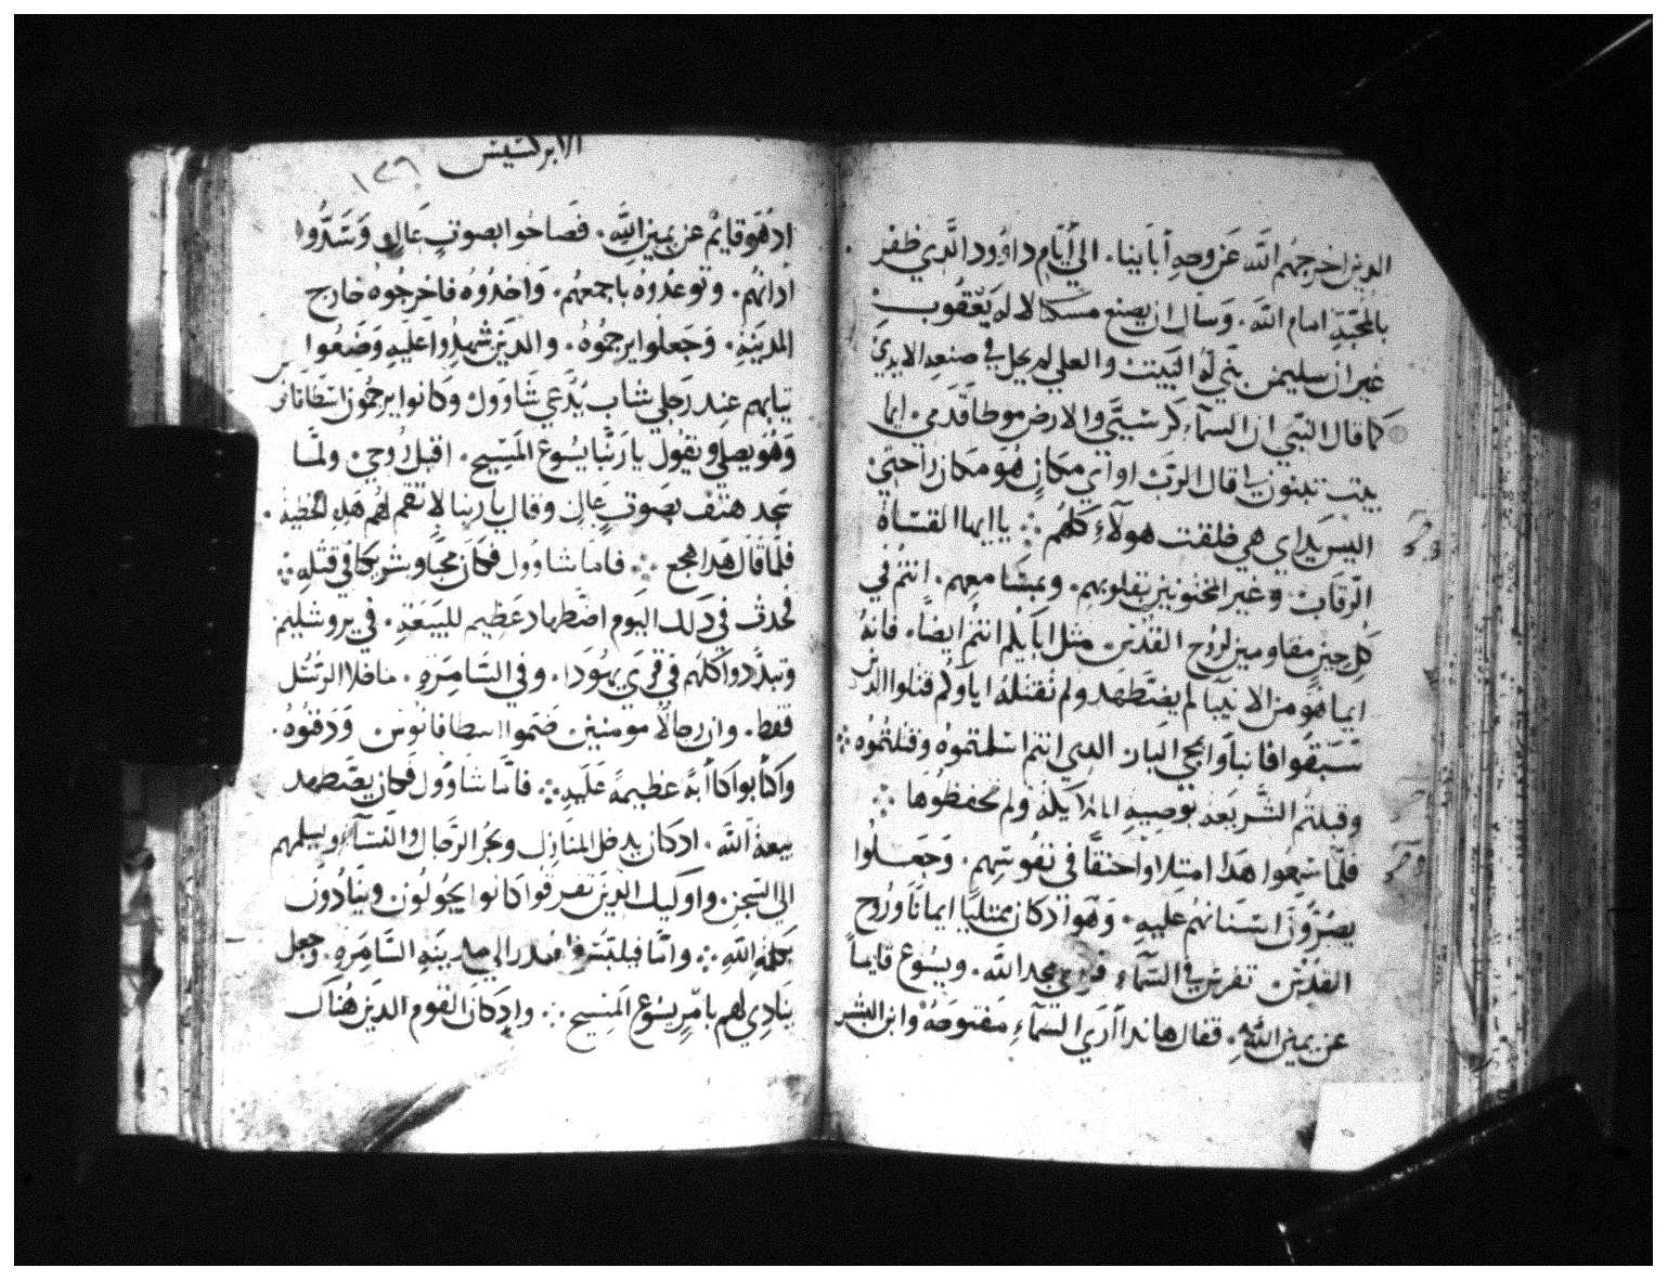 الدين اخرجهم الله عن وجه أباينا. الي أيام داوود الدي ظفر
بالمحبة امام الله. وسال ان يصنع مسكنا لاله يعقوب
غير ان سليمن بني له البيت والعلي لم يحل في صنعه الايدي
كما قال النبي ان السمآء كرسيي والارض موطا قدمي. ايما
بيت تبنون لي قال الرب او اي مكان هو مكان راحتي
اليس يداي هي خلقت هولآء كلهم ∴ يا ايها القساة
الرقاب وغير المختونين بقلوبهم. وبمسامعهم. انتم في
كل حين مقاومين لروح القدس. مثل ابايكم انتم ايضا. فانه
ايما هو من الانبيا لم يضطهد ولم تقتله اباوكم قتلوا الدين
سبقوا فانباوا بمجي البار الدي انتم اسلمتموه وقتلتموه ∴
وقبلتم الشريعه بوصيه الملايكه ولم تحفظوها ∴
فلما سمعوا هدا امتلاوا حنقا في نفوسهم. وجعلوا
يصرون اسنانهم عليه. وهو اد كان ممتليا ايمانا وروح
القدس تفرس في السمآء فراي مجد الله. ويسوع قايما
عن يمين الله. فقال هاندا أري السمآء مفتوحه وابن البشر
الابركسيس
١٢٦
اد هو قايم عن يمين الله. فصاحوا بصوت عال وسدوا
ادانهم. وتوعدوه باجمعهم. واخدوه فاخرجوه خارج
المدينه. وجعلوا يرجموه. والدين شهدوا عليه وضعوا
تيابهم عند رجلي شاب يدعي شاوول وكانوا يرجمون اسطافانوس
وهو يصلي ويقول يا ربنا يسوع المسيح. اقبل روحي. ولما
سجد هتف بصوت عال وقال يا ربنا لا تقم لهم هده الخطيه.
فلما قال هدا هجع ∴ فاما شاوول فكان محبا وشريكا في قتله ∴
فحدث في دلك اليوم اضطهاد عظيم للبيعة. في يروشليم
وتبددوا كلهم في قري يهودا. وفي السامره. ما خلا الرسل
فقط. وان رجالا مومنين ضموا اسطافانوس ودفنوه.
واكتابوا كأابة عظيمة عليه ∴ فاما شاوول فكان يضطهد
بيعة الله. اد كان يدخل المنازل ويجر الرجال والنسآء ويسلمهم
الي السجن. واوليك الدين تفرقوا كانوا يجولون وينادون
بكلمة الله ∴ واما فيلبس فانحدر الي مدينه السامره. وجعل
ينادي لهم بامر يسوع المسيح ∴ واد كان القوم الدين هناك